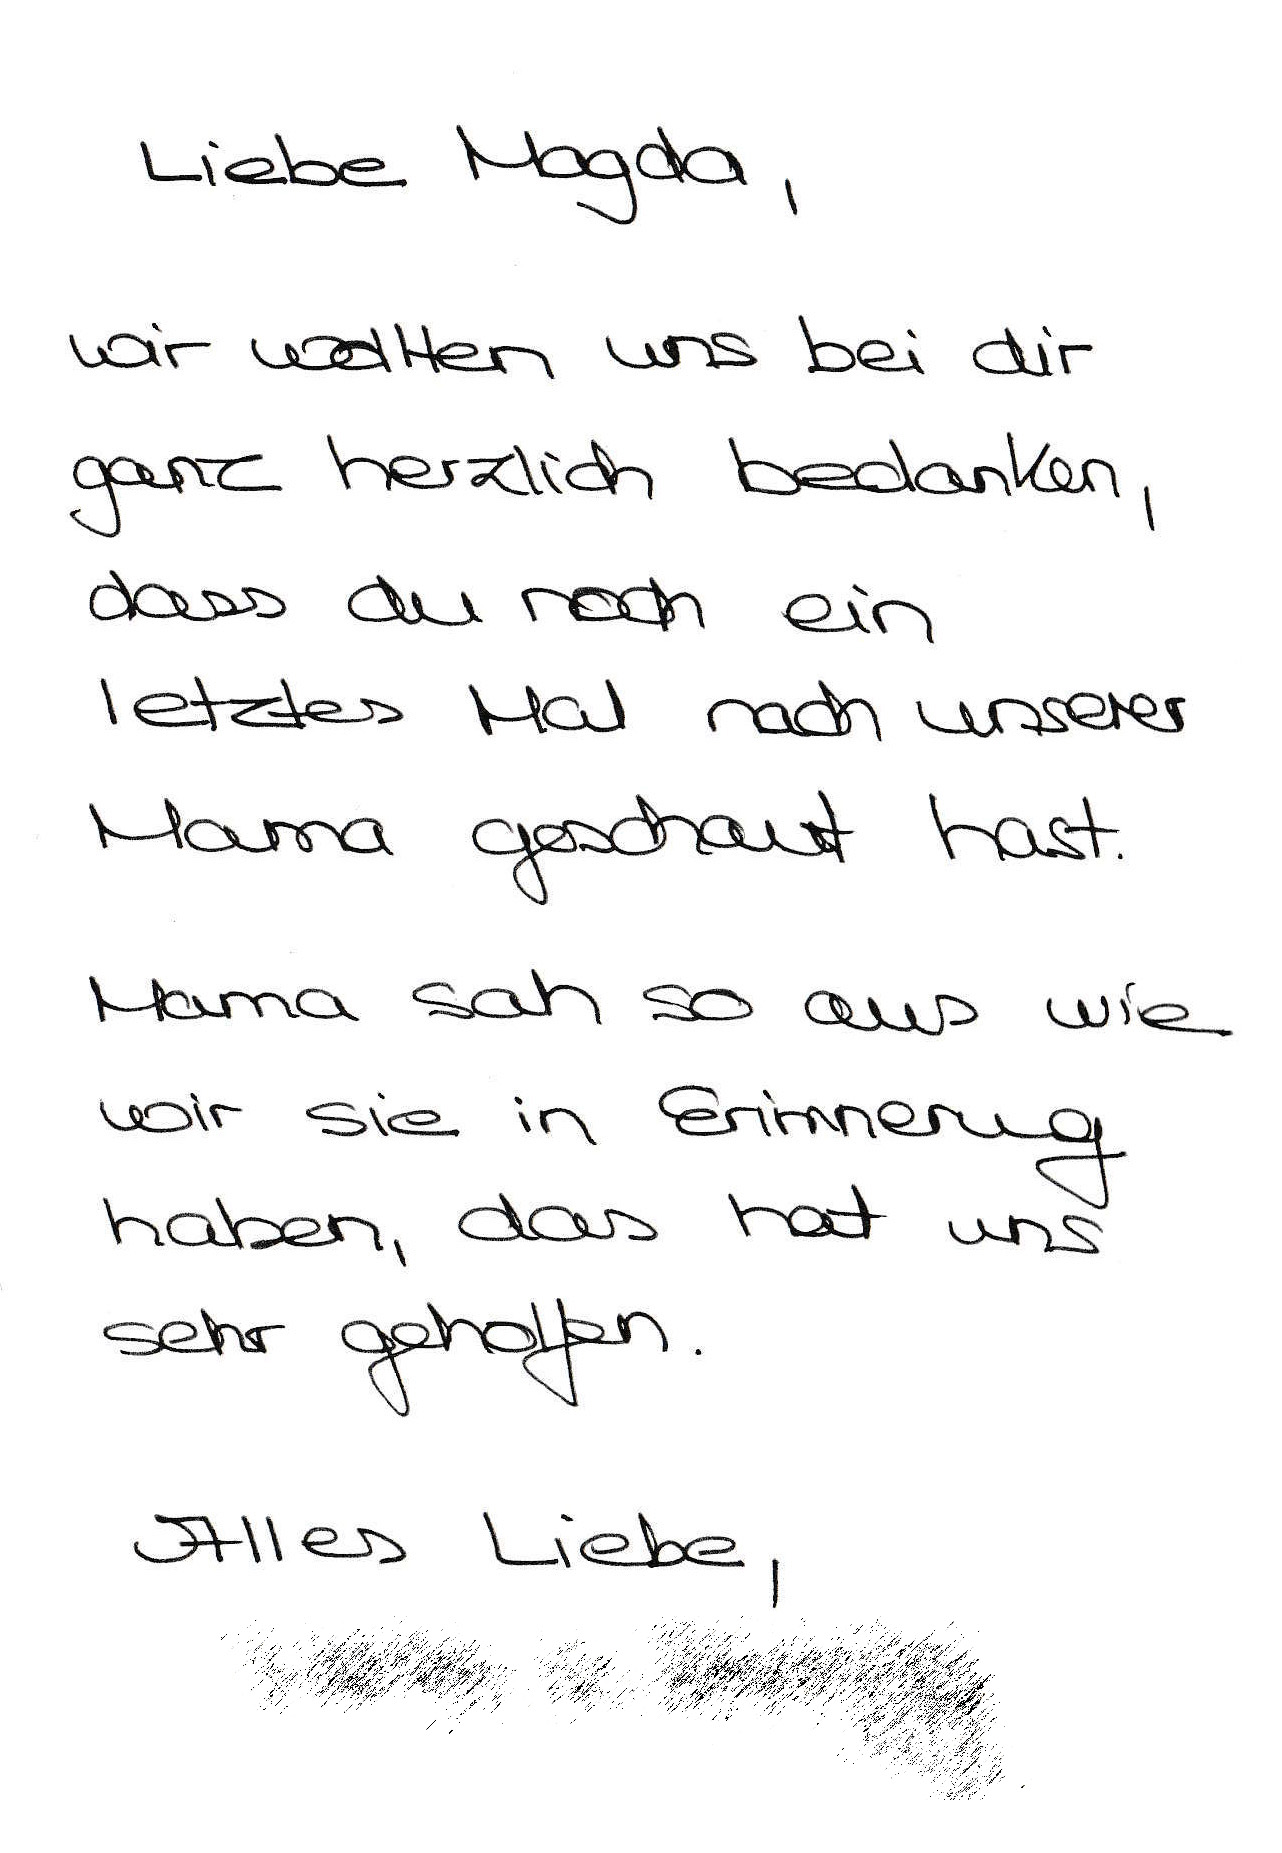 Liebe Magda,
wir wollten uns bei dir
ganz herzlich bedanken,
dass du noch ein
letztes Mal nach unserer
Mama geschaut hast.
Mama sah so aus wie
wir sie in Erinnerug
haben, das hat uns
sehr geholfen.
Alles Liebe,